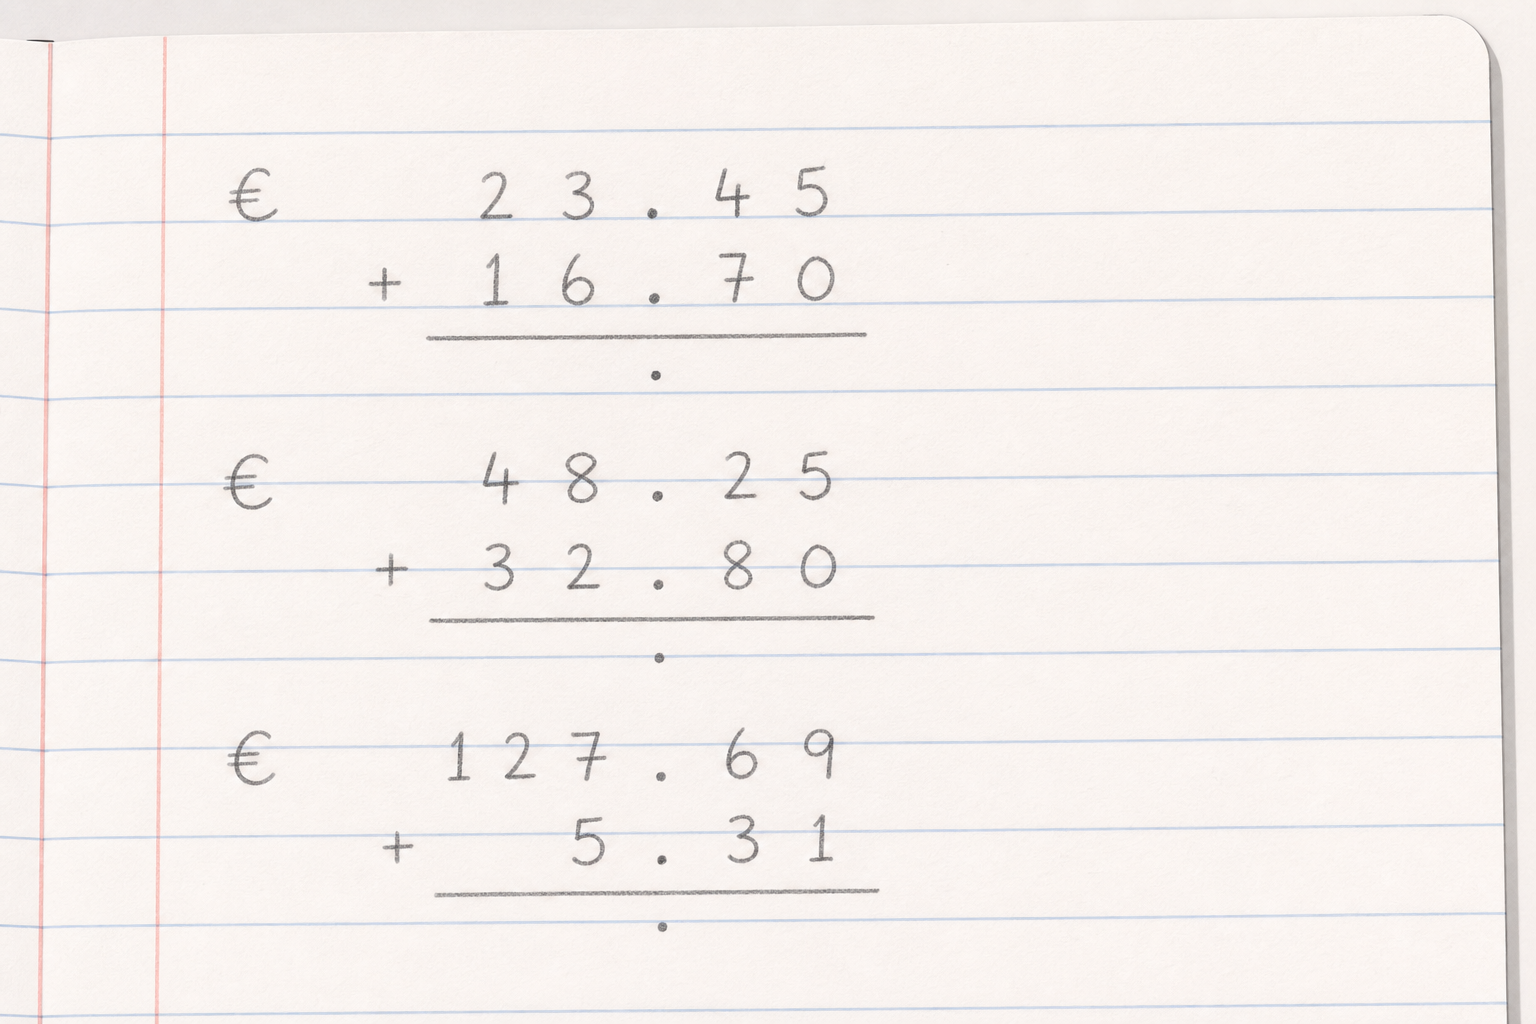 € 23.45
+ 16.70
.
€ 48.25
+ 32.80
.
€ 127.69
+ 5.31
.